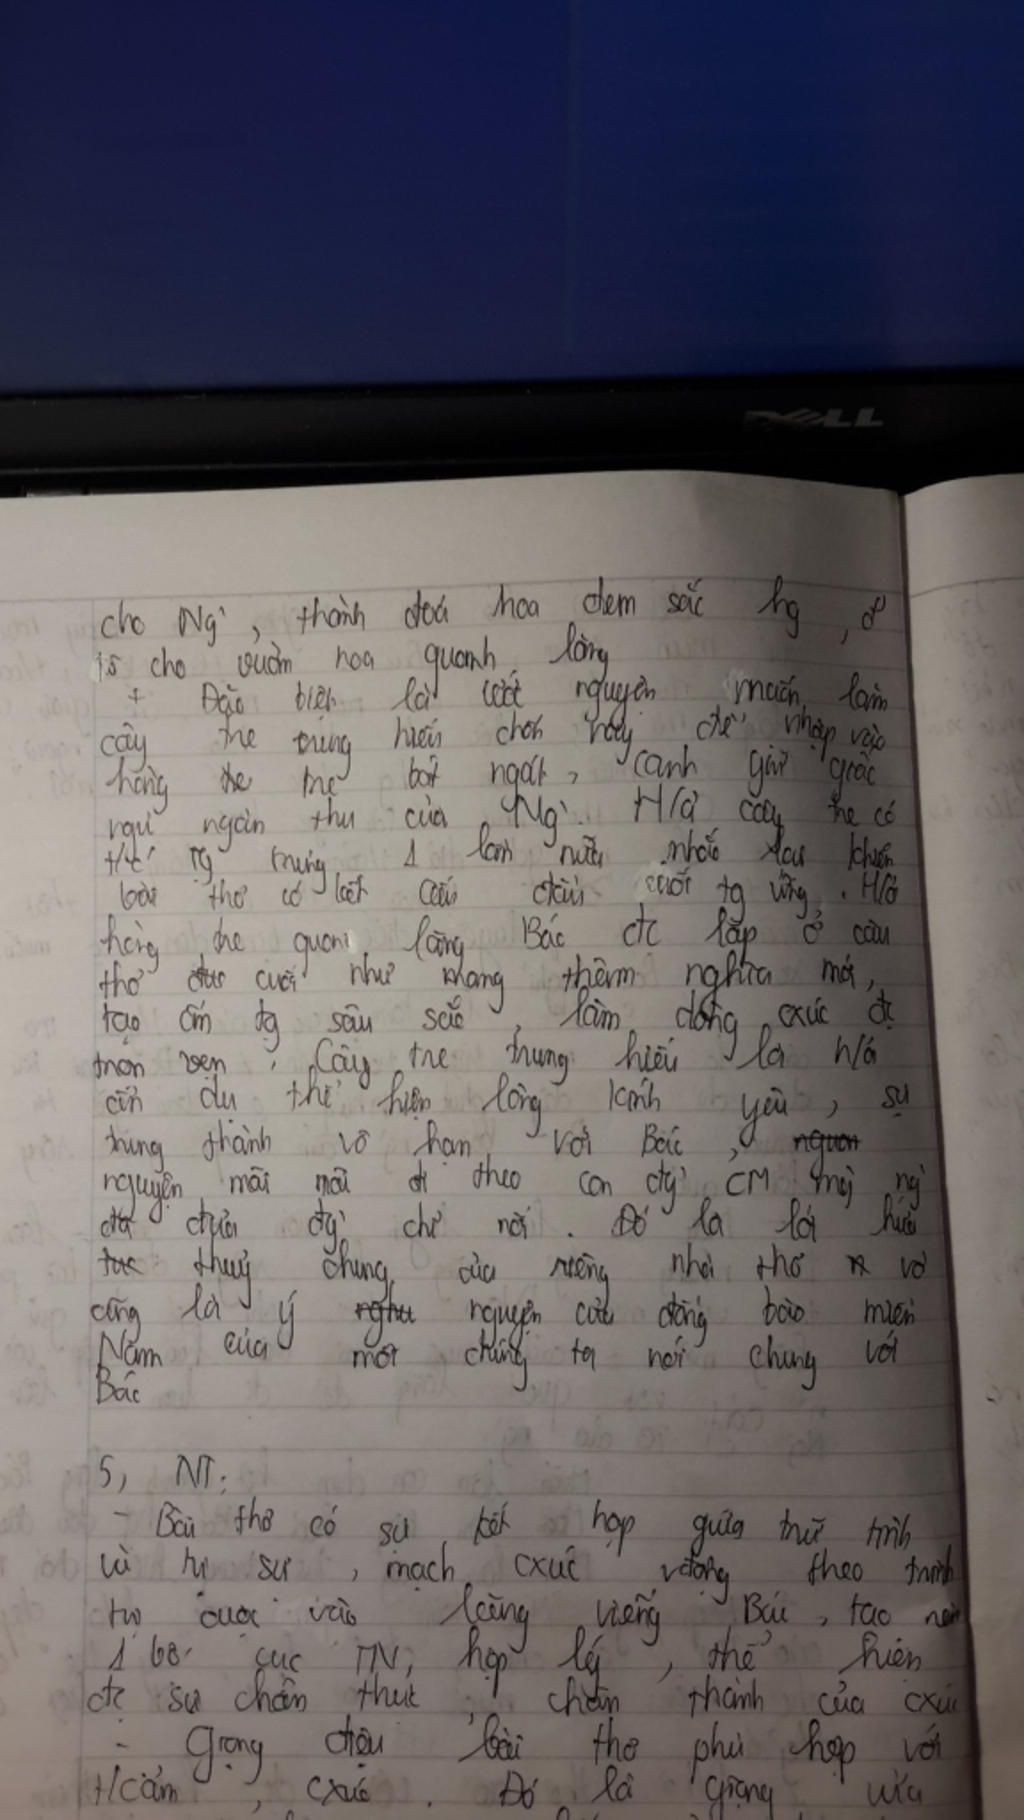 DELL
cho Ng', thành đoá hoa đem sắc hg,
cho vườn hoa quanh lăng
+ Đặc biệt là ước nguyện muốn làm
cây tre trung hiếu chốn này để nhập vào
hàng tre bát ngát, canh giữ giấc
ngủ ngàn thu của Ng'. H/a cây tre có
1 lần nữa nhắc lại khiến
bài thơ có kết cấu đầu cuối tg ứng. H/a
hàng tre quanh lăng Bác đc lặp ở câu
thơ cuối như mang thêm nghĩa mới,
tạo ấn tg sâu sắc, làm dòng cxúc đc
trọn vẹn. Cây tre trung hiếu là h/a
ẩn dụ thể hiện lòng kính yêu, sự
trung thành vô hạn với Bác,
nguyện mãi mãi đi theo con đg' CM mà ng'
đã đưa đg' chỉ nối. Đó là lời hứa
thuỷ chung của riêng nhà thơ và
cũng là ý nguyện của đồng bào miền
Nam của mỗi chúng ta nói chung với
Bác
5, NT:
- Bài thơ có sự kết hợp giữa trữ tình
và tự sự, mạch cxúc vđộng theo trình
tự cuộc vào lăng viếng Bác, tạo nên
1 bố cục TN, hợp lý, thể hiện
đc sự chân thực, chân thành của cxúc
- Giọng điệu bài thơ phù hợp với
t/cảm, cxúc. Đó là giọng vừa